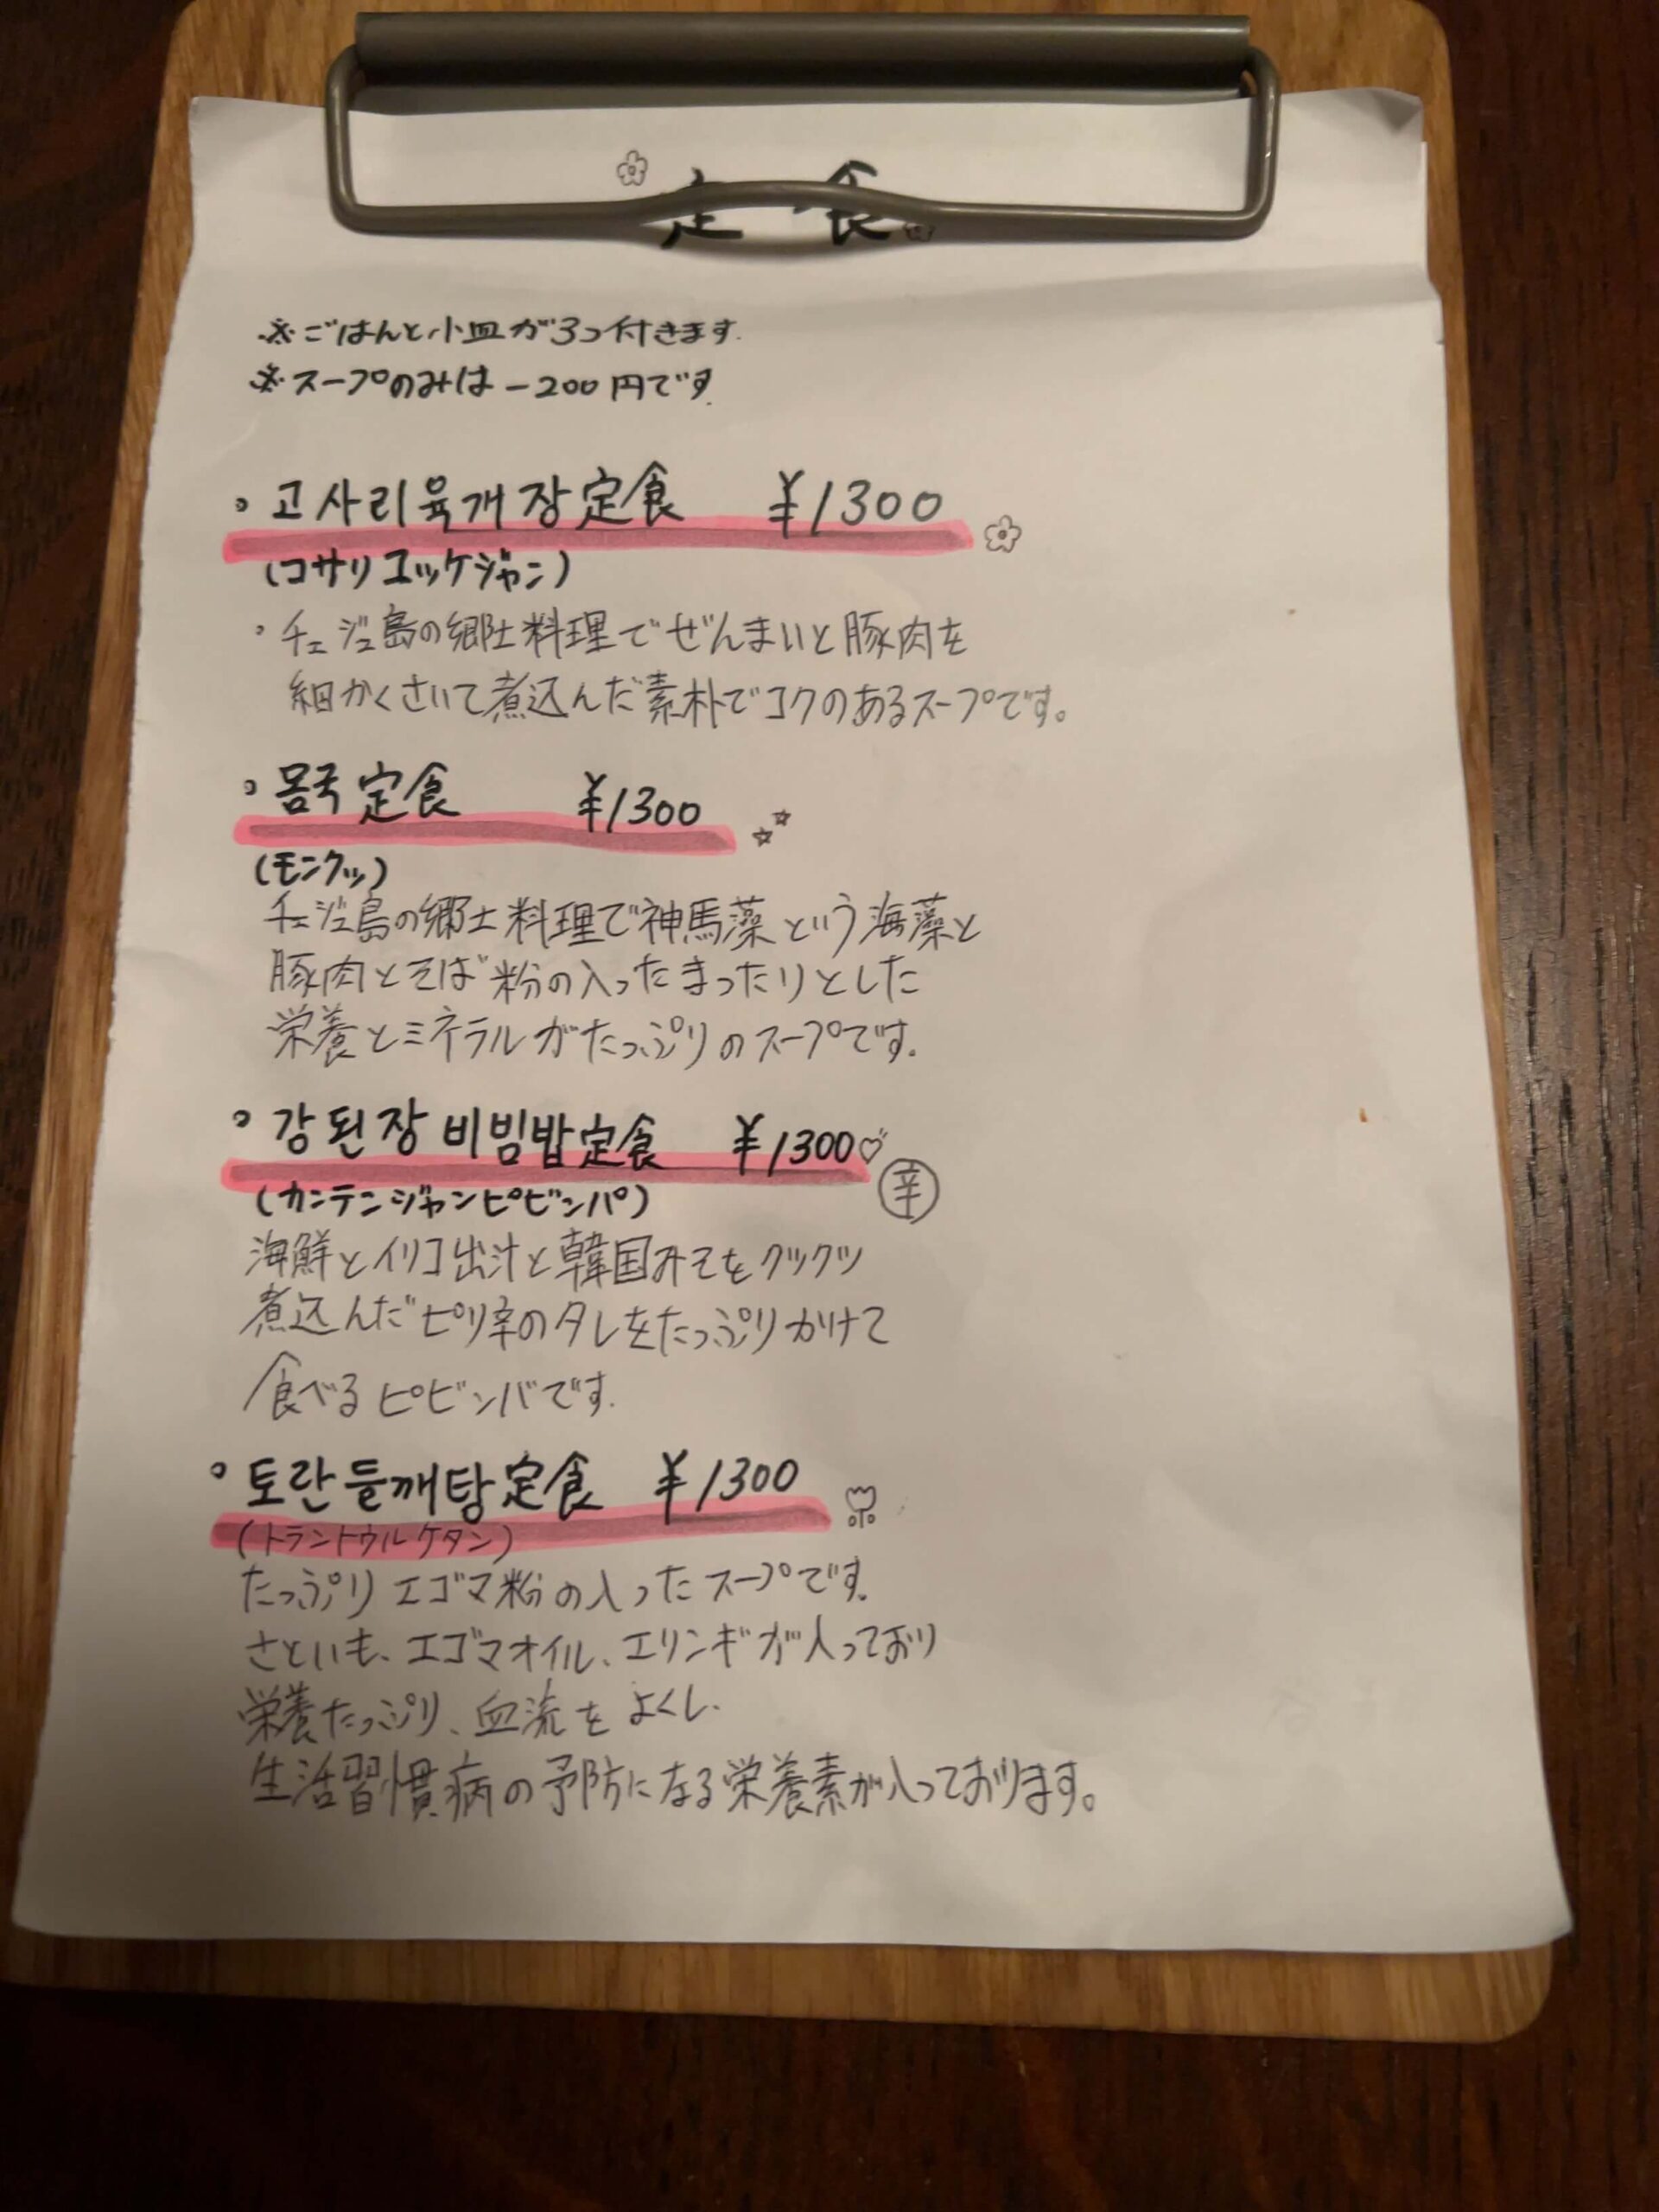 定食
※ごはんと小皿が3つ付きます.
※スープのみは-200円です.
。고사리육개장定食 ¥1300
(コサリユッケジャン)
・チェジュ島の郷土料理でぜんまいと豚肉を
細かくさいて煮込んだ素朴でコクのあるスープです。
。몸국定食 ¥1300
(モンクッ)
チェジュ島の郷土料理で神馬藻という海藻と
豚肉とそば粉の入ったまったりとした
栄養とミネラルがたっぷりのスープです.
。강된장비빔밥定食 ¥1300
辛
(カンテンジャンピビンパ)
海鮮とイリコ出汁と韓国みそをクツクツ
煮込んだピリ辛のタレをたっぷりかけて
食べるピビンバです.
。토란들깨탕定食 ¥1300
(トラントゥルケタン)
たっぷりエゴマ粉の入ったスープです.
さといも、エゴマオイル、エリンギが入っており
栄養たっぷり、血流をよくし、
生活習慣病の予防になる栄養素が入っております。